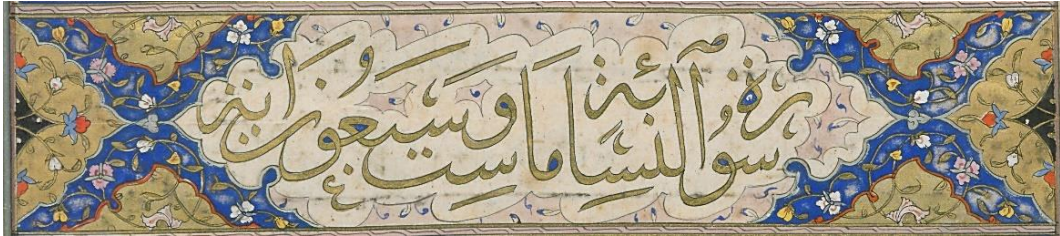 سورة النسا مائة وست وسبعون اية